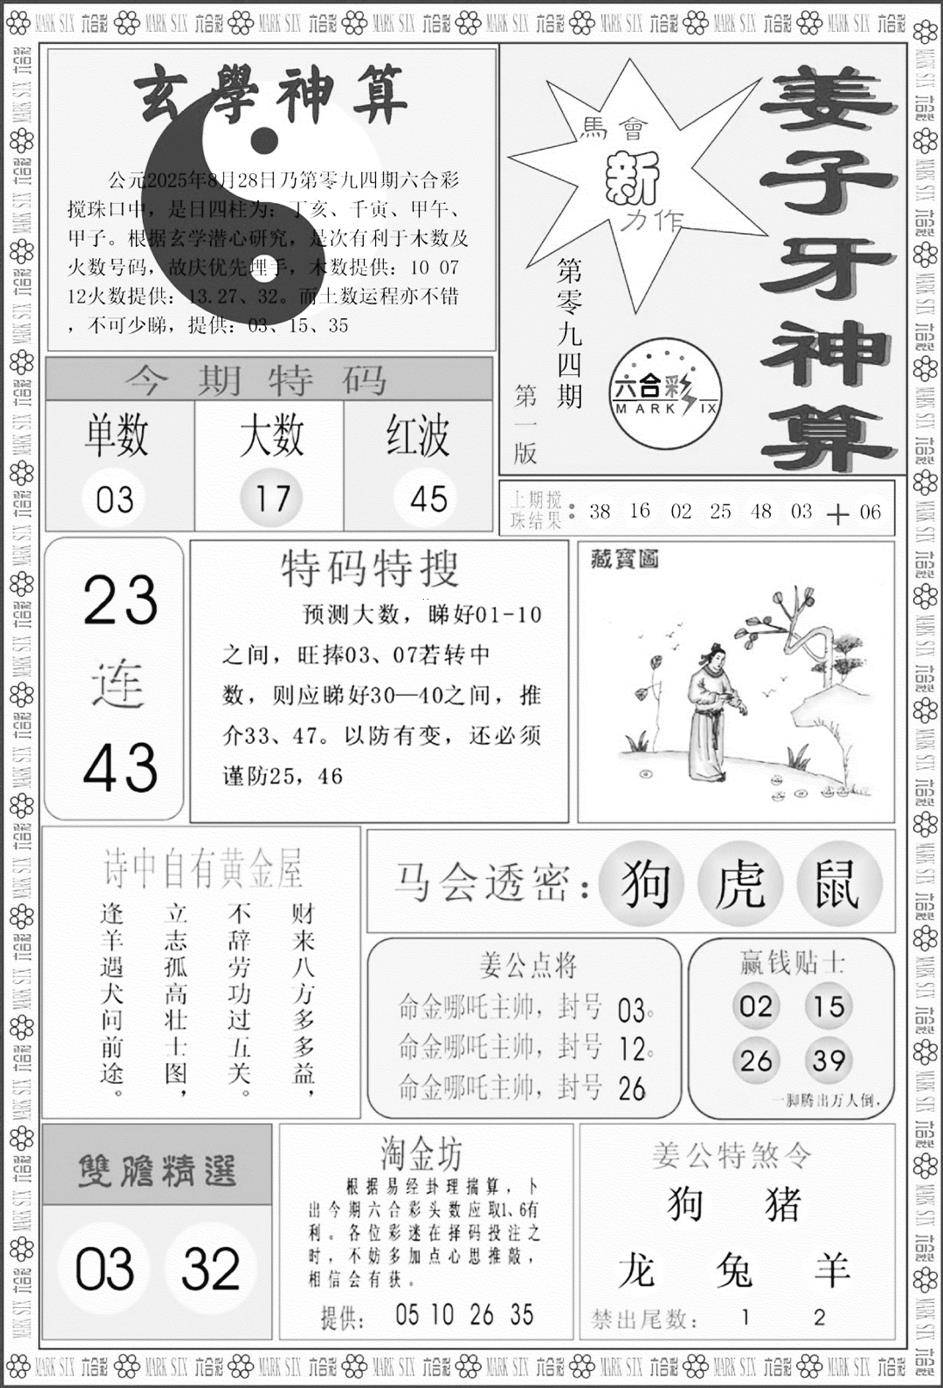 玄學神算
公元2025年8月28日乃第零九四期六合彩
搅珠口中，是日四柱为：丁亥、千寅、甲午、
甲子。根据玄学潜心研究，是次有利于木数及
火数号码，故庆优先埋手，木数提供：10 07
12火数提供：13.27、32。而土数运程亦不错
，不可少睇，提供：03、15、35
姜子牙神算
馬會
新
力作
第零九四期
第一版
六合彩
MARK SIX
今期特码
单数 大数 红波
03 17 45
上期搅
珠结果：38 16 02 25 48 03 ＋ 06
23
连
43
特码特搜
预测大数，睇好01-10
之间，旺捧03、07若转中
数，则应睇好30—40之间，推
介33、47。以防有变，还必须
谨防25，46
藏寶圖
诗中自有黄金屋
财来八方多多益，
不辞劳功过五关。
立志孤高壮士图，
逢羊遇犬问前途。
马会透密：狗 虎 鼠
姜公点将
命金哪吒主帅，封号 03。
命金哪吒主帅，封号 12。
命金哪吒主帅，封号 26
赢钱贴士
02 15
26 39
一脚腾出万人倒，
雙膽精選
03 32
淘金坊
根据易经卦理揣算，卜
出今期六合彩头数应取1、6有
利。各位彩迷在择码投注之
时，不妨多加点心思推敲，
相信会有获。
提供： 05 10 26 35
姜公特煞令
狗 猪
龙 兔 羊
禁出尾数： 1 2